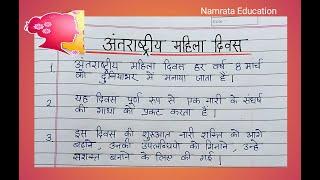 Namrata Education
अंतराष्ट्रीय महिला दिवस
1. अंतराष्ट्रीय महिला दिवस हर वर्ष 8 मार्च
को दुनियाभर में मनाया जाता हैं।
2. यह दिवस पूर्ण रूप से एक नारी के संघर्ष
की गाथा को प्रकट करता हैं।
3. इस दिवस की शुरुआत नारी शक्ति को आगे
बढ़ाने, उनकी उपलब्धियों को गिनाने, उन्हें
सशक्त बनाने के लिए की गई।